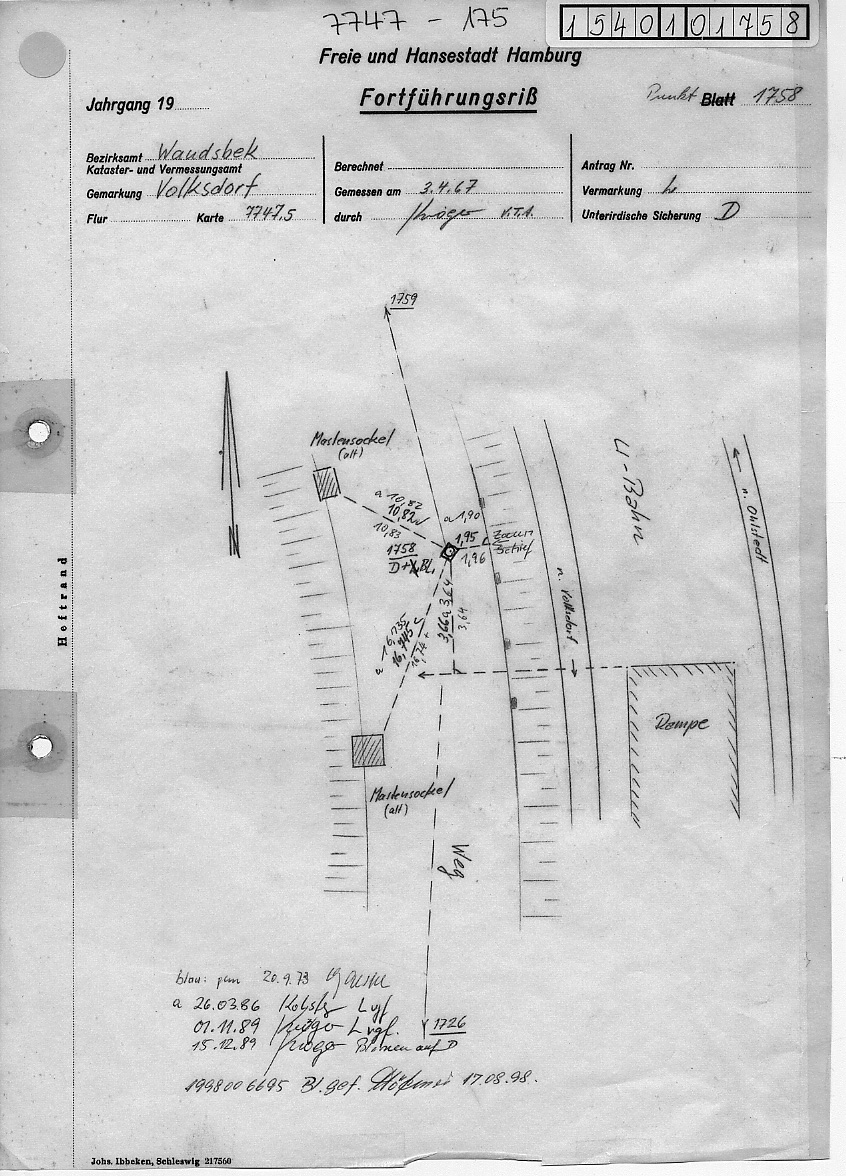 7747 - 175
1540101758
Freie und Hansestadt Hamburg
Jahrgang 19
Fortführungsriß
Punkt Blatt 1758
Bezirksamt Wandsbek
Kataster- und Vermessungsamt
Gemarkung Volksdorf
Flur Karte 7747,5
Berechnet
Gemessen am 3.4.67
durch Kröger V.T.A.
Antrag Nr.
Vermarkung
Unterirdische Sicherung D
1759
Mastensockel
(alt)
U-Bahn
n. Ohlstedt
a 10,82
10,82
10,83
a 1,90
1,95
1,96
Zaun
Schief
1758
D+ Bl.
n. Volksdorf
3,66 a 3,64
3,64
a 16,735
16,745
16,74
Rampe
Mastensockel
(alt)
Weg
Heftrand
blau: 20.9.73
a 26.03.86
01.11.89 Kröger
15.12.89 Kröger auf D
1726
1998006695 Bl. gef. 17.08.98.
Johs. Ibbeken, Schleswig 217560